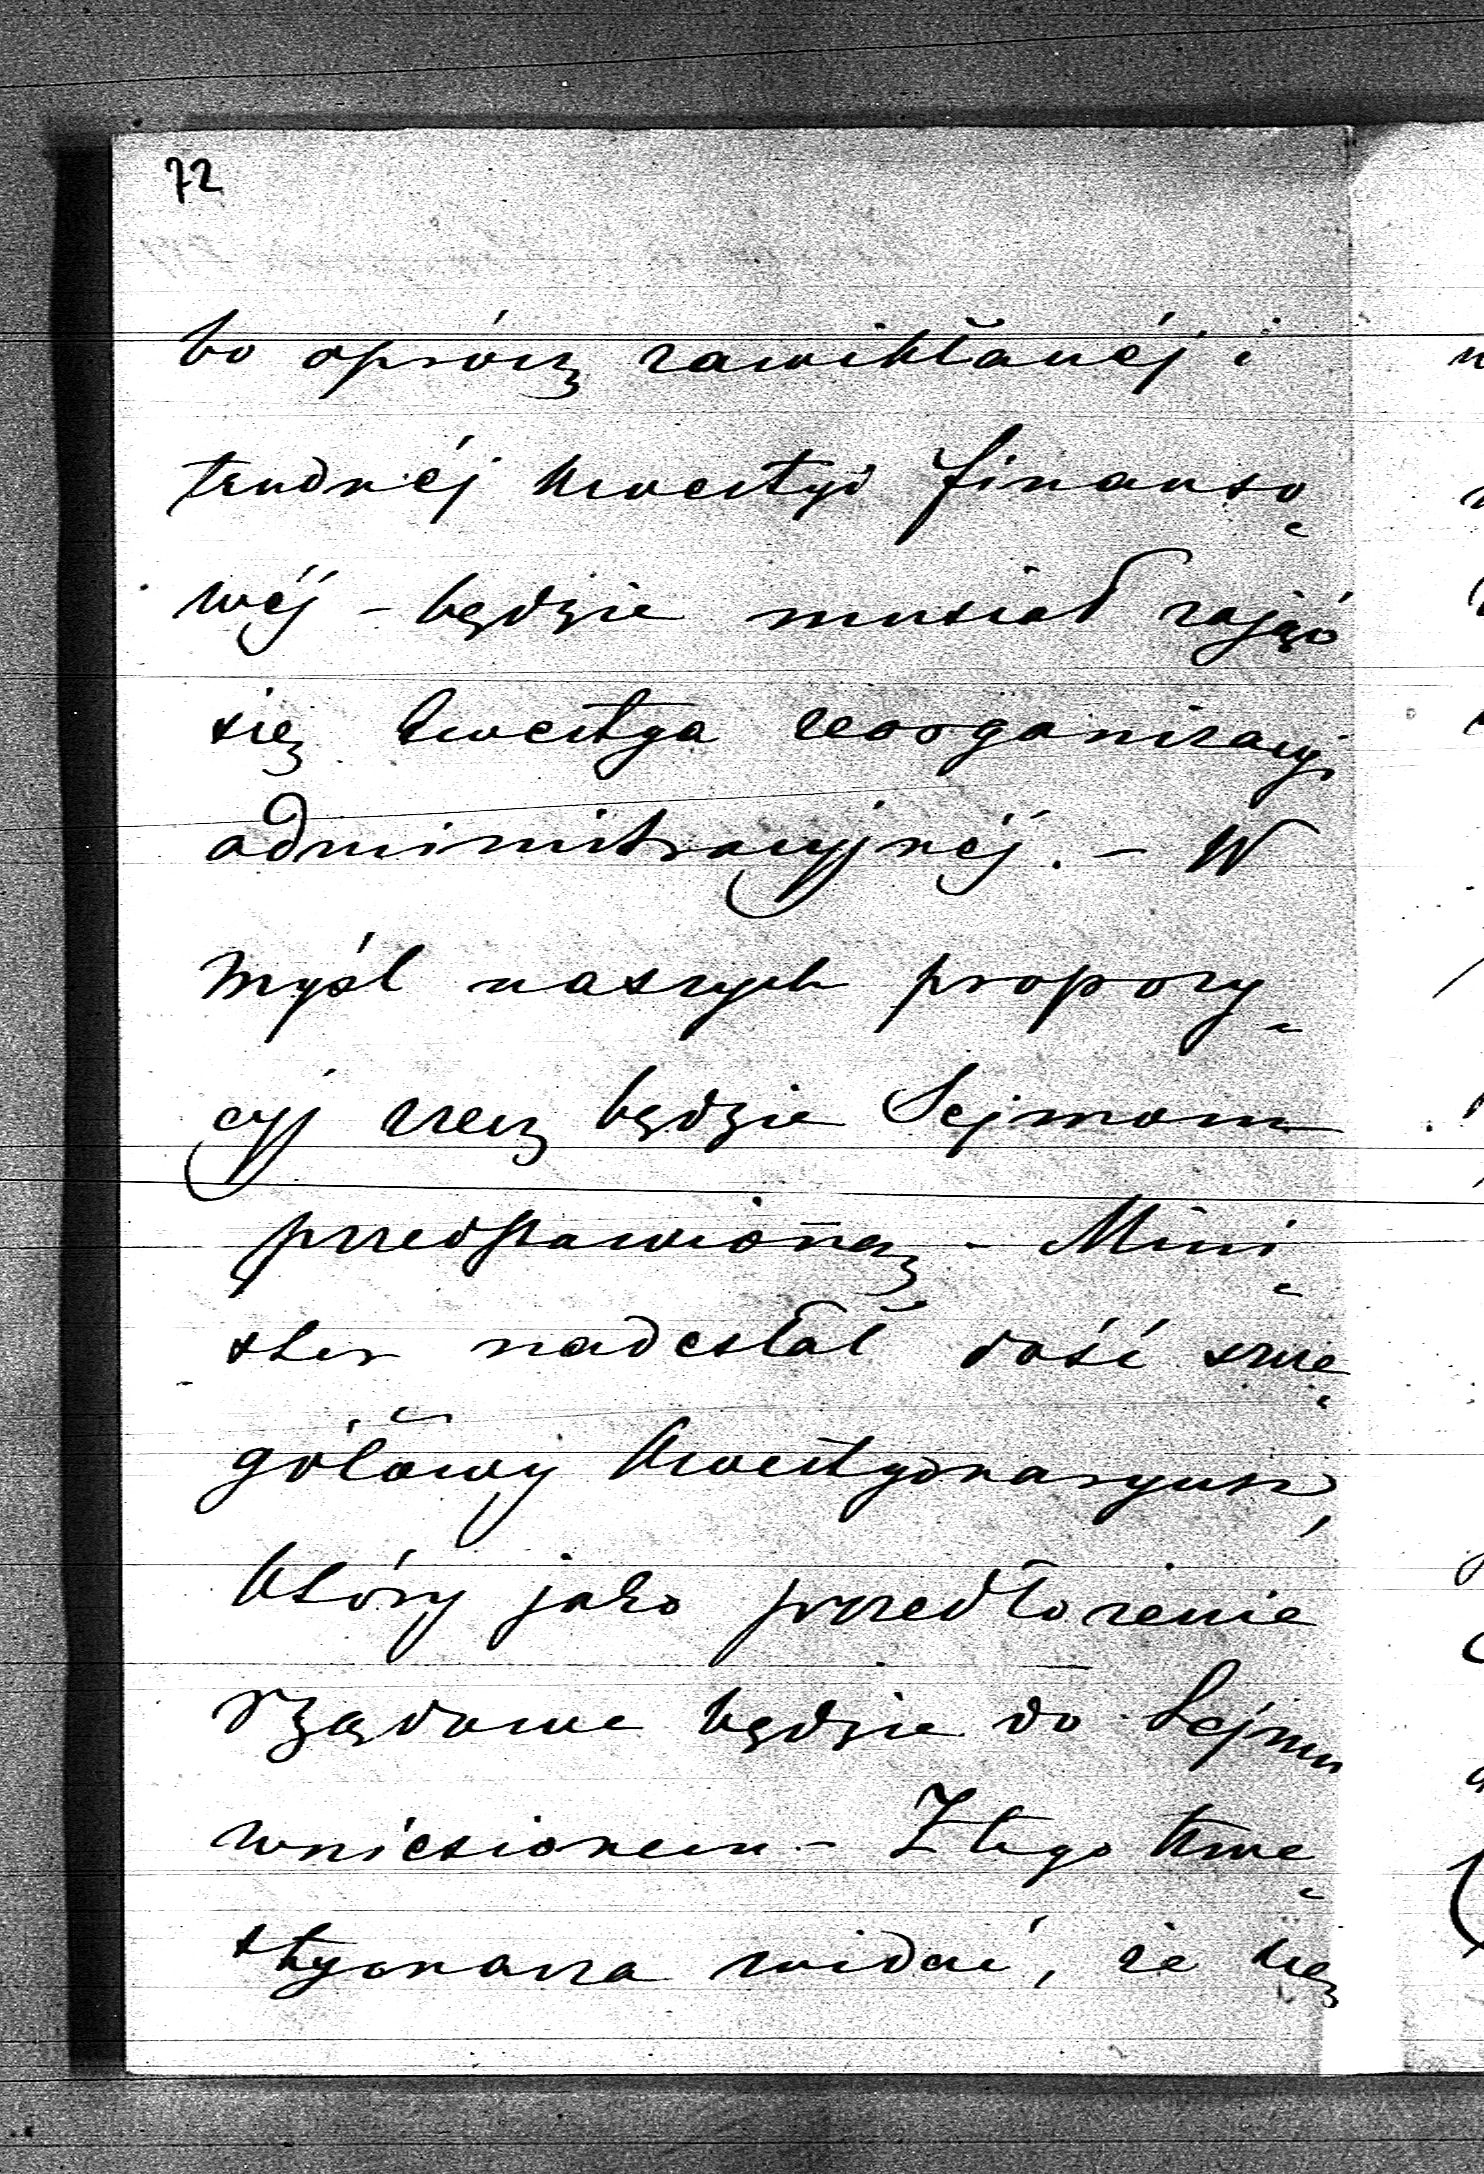 72
bo oprócz zawikłanéj i
trudnéj kwestyi finanso-
wéj – będzie musiał zająć
się kwestya reorganizacyi
administracyjnéj. – W
myśl naszych propozy-
cyj rzecz będzie Sejmom
przedstawioną – Mini-
ster nadesłał dość szcze-
gółowy kwestyonaryusz,
który jako przedłożenie
rządowe będzie do Sejmu
wniesionem – Z tego kwe-
styonarza widać, że się